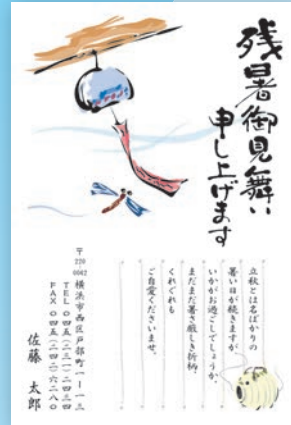 残暑御見舞い
申し上げます
立秋とは名ばかりの
暑い日が続きますが、
いかがお過ごしでしょうか。
まだまだ暑さ厳しき折柄、
くれぐれも
ご自愛くださいませ。
〒220-0042
横浜市西区戸部町一ー一三
TEL〇四五(二三一)二四三四
FAX〇四五(二四二)六二八〇
佐藤 太郎